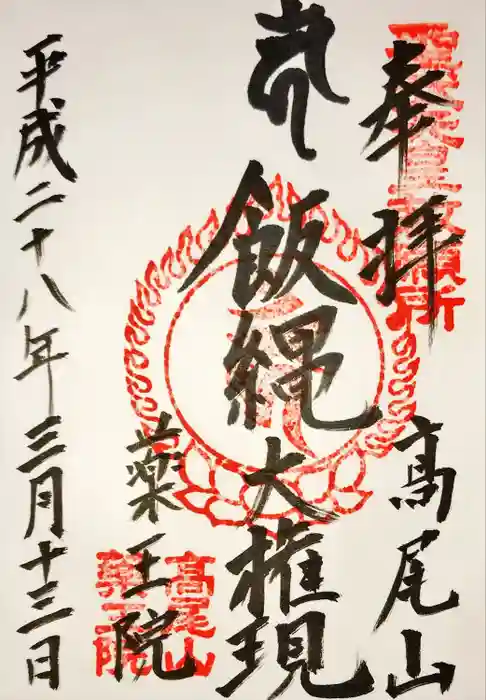 奉拝
高尾山
飯縄大権現
薬王院
平成二十八年三月十三日
高尾山
薬王院